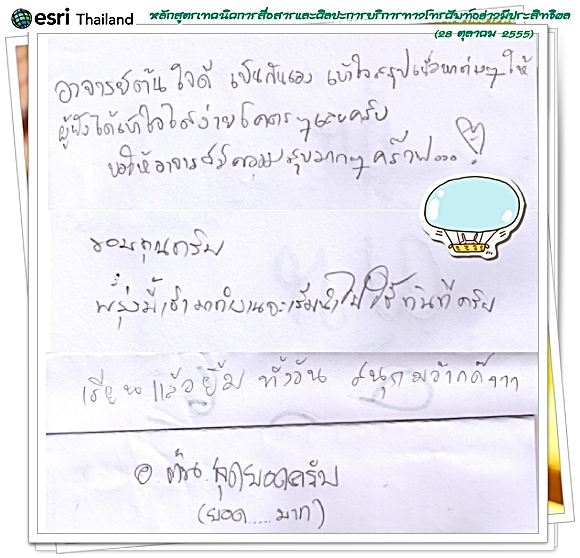 esri Thailand
หลักสูตรเทคนิคการสื่อสารและศิลปะการบริการทางโทรศัพท์อย่างมีประสิทธิผล
(28 ตุลาคม 2555)
อาจารย์ต้น ใจดี เป็นกันเอง เข้าใจสรุปเนื้อหาต่างๆ ให้
ผู้ฟังได้เข้าใจได้ง่ายโคตรๆเลยครับ
ขอให้อาจารย์มีความสุขมากๆ คร๊าฟ...!
ขอบคุณครับ
พรุ่งนี้เช้ามาทำงานจะเริ่มนำไปใช้ทันทีครับ
เรียนแล้วยิ้ม ทั้งวัน สนุกมว๊ากค๊าาาา
อ.ต้น สุดยอดครับ
(ยอด.....มาก)